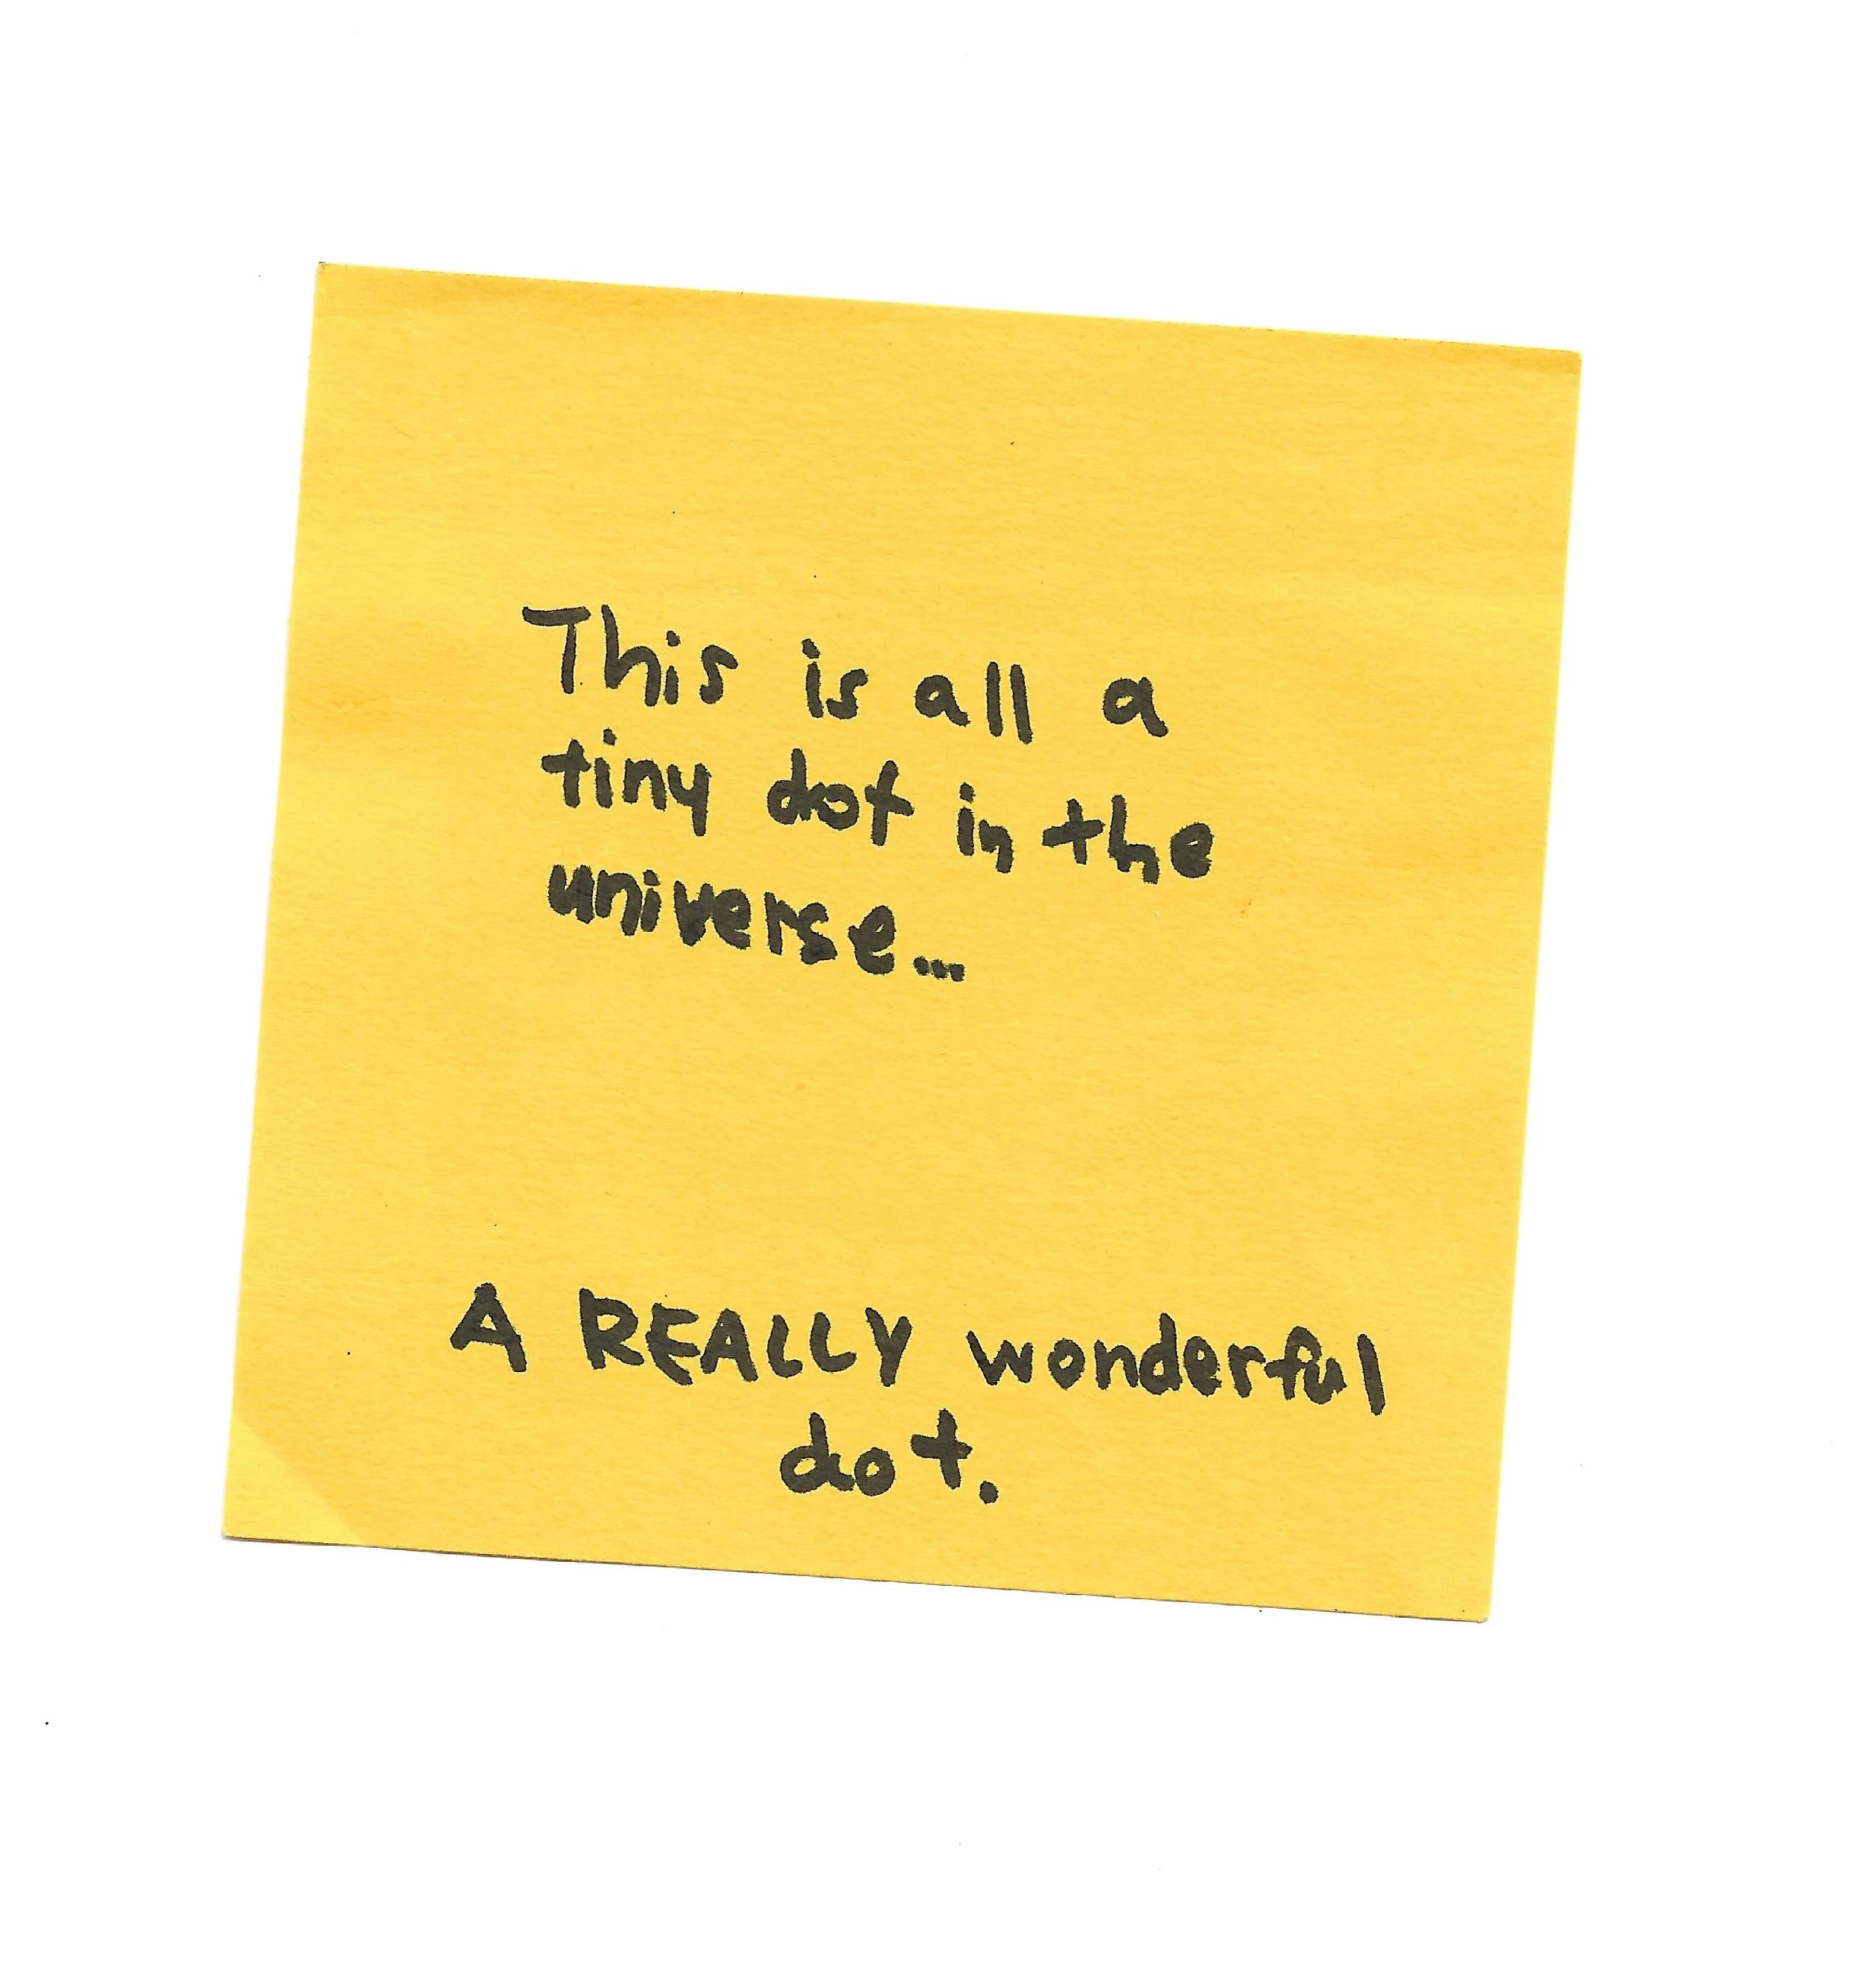 This is all a
tiny dot in the
universe...
A REALLY wonderful
dot.